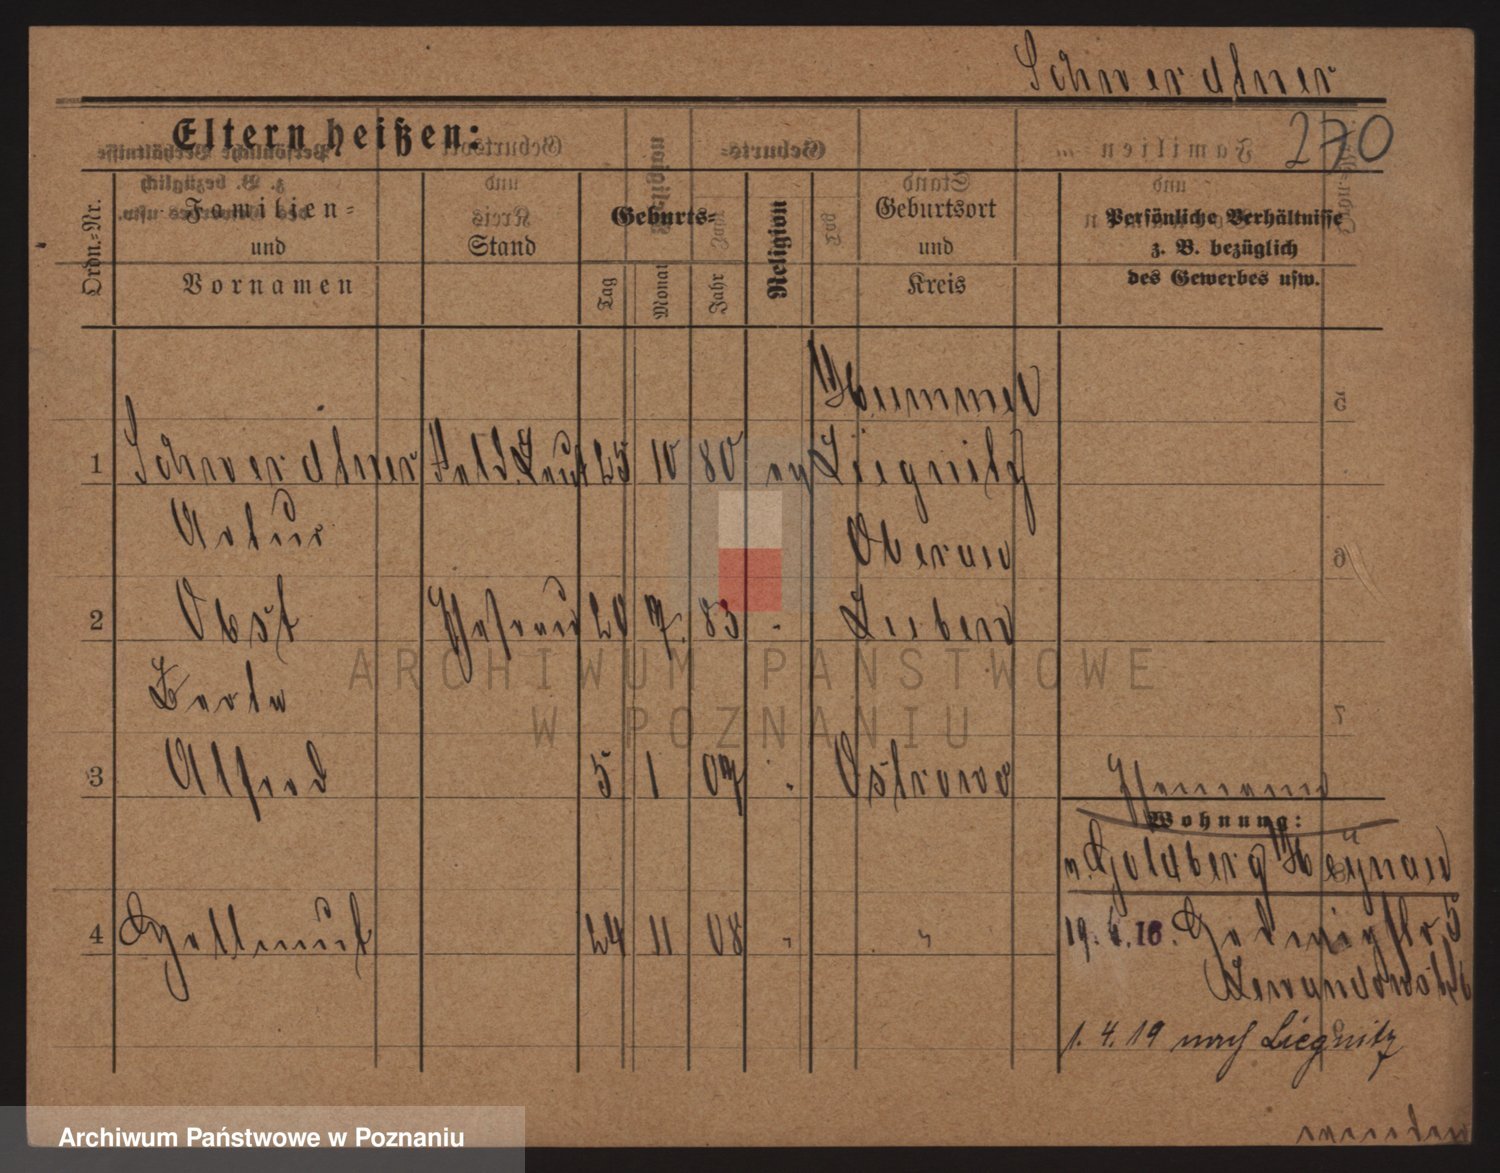 Schwerdtner
270
Eltern heißen:
Ordn.-Nr.
Familien-
und
Vornamen
Stand
Geburts-
Tag
Monat
Jahr
Religion
Geburtsort
und
Kreis
Persönliche Verhältnisse
z. B. bezüglich
des Gewerbes usw.
Hummel
1 Schwerdtner 25 10 80 ev Liegnitz
Artur
Oberau
2 Obst 20 7. 83 Lüben
Berta
3 Alfred 5 1 07 Ostrowo
Wohnung:
v. Goldberg Haynau
4 Hellmut 24 11 08 " "
19. 4. 16. Hedwigstr 5
Lewandowski
1. 4. 19 nach Liegnitz
Archiwum Państwowe
w Poznaniu
Archiwum Państwowe w Poznaniu